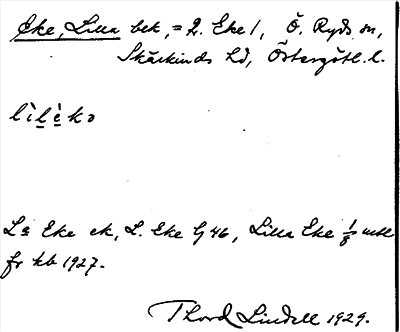 Eke, Lilla bek, = 2. Eke 1, Ö. Ryds sn,
Skärkinds hd, Östergötl. l.
lìlèkə
La Eke ek, L. Eke Gj 46, Lilla Eke 1/8 mtl
fr kb 1927.
Thord Lindell 1929.